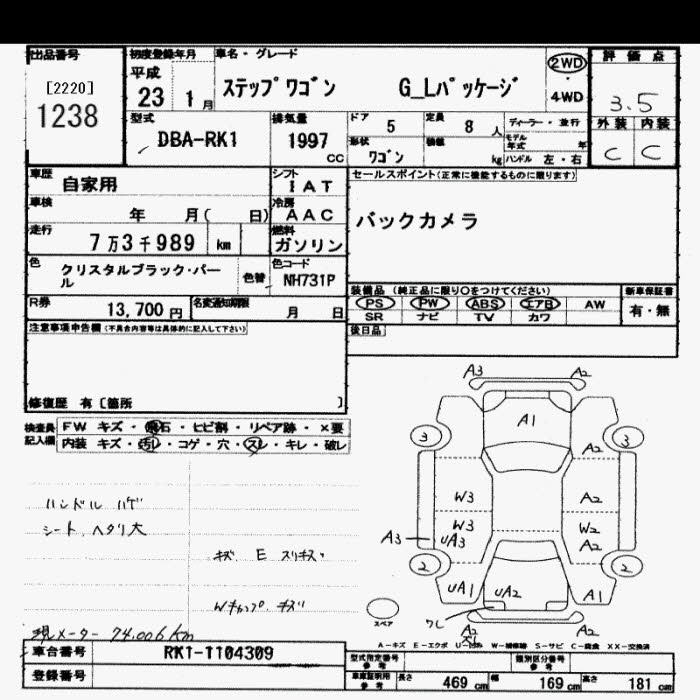 出品番号
[2220]
1238
初度登録年月
平成
23 1月
車名・グレード
ステップワゴン G_Lパッケージ
2WD
・
4WD
評価点
3.5
外装 内装
C C
型式
DBA-RK1
排気量
1997
CC
ドア 5
定員 8 人
形状 ワゴン
積載 kg
ディーラー・並行
モデル年式 年
ハンドル 左・右
車歴 自家用
シフト IAT
車検 年 月( 日)
冷房 AAC
走行 7万3千989 km
燃料 ガソリン
色 クリスタルブラック・パール
色替
色コード NH731P
R券 13,700 円
名変通知期限 月 日
セールスポイント(正常に機能するものに限ります)
バックカメラ
装備品 (純正品に限り○をつけてください)
PS PW ABS エアB AW
SR ナビ TV カワ
新車保証書
有・無
後日品
注意事項申告欄(不具合内容等は具体的に記入して下さい)
修復歴 有 [箇所 ]
検査員記入欄
FW キズ・飛石・ヒビ割・リペア跡・×要
内装 キズ・汚れ・コゲ・穴・スレ・キレ・破レ
ハンドル ハゲ
シート ヘタリ大
キズ E スリキズ
Wキャップ キズ
現メーター 74,006km
A3 A2
A1
3 3
A2
W3 A2
W3 W2
A3 UA3 A2
2 2
UA1 UA2 A1
ワレ
A2 X1 A2
スペア
A-キズ E-エクボ U-凹み W-補修跡 S-サビ C-腐食 XX-交換済
車台番号 RK1-1104309
登録番号
型式指定番号 参考
類別区分番号 参考
車庫証明用 参考
長さ 469 cm
幅 169 cm
高さ 181 cm